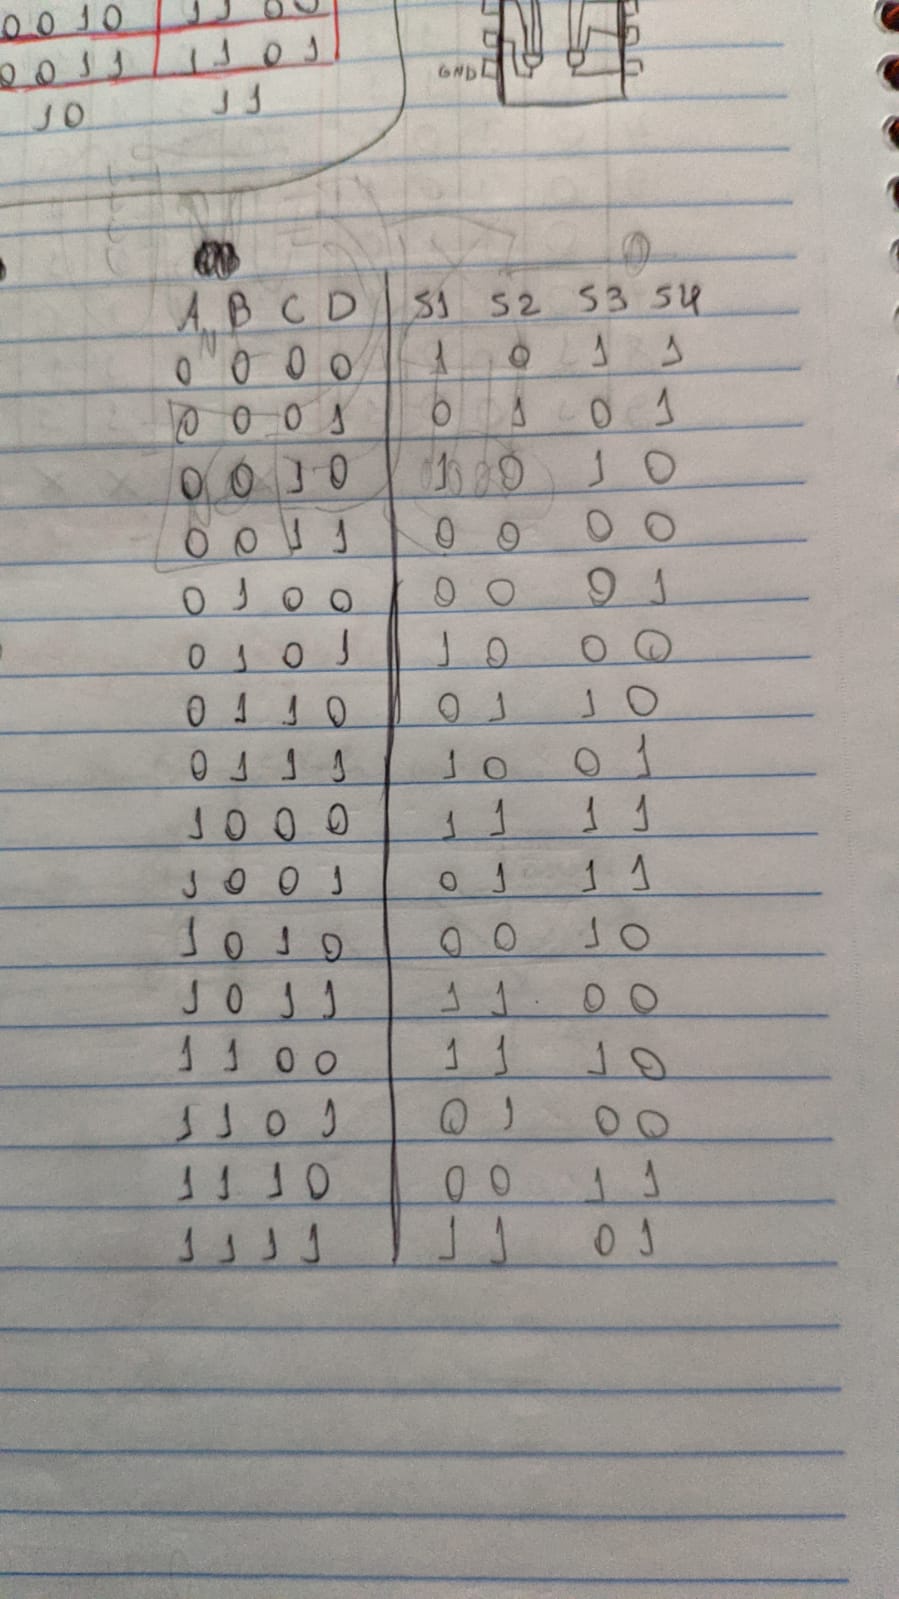 0 0 1 0 1 1 0 0
0 0 1 1 1 1 0 1
GND
10 11
A B C D S1 S2 S3 S4
0 0 0 0 1 0 1 1
0 0 0 1 0 1 0 1
0 0 1 0 1 0 1 0
0 0 1 1 0 0 0 0
0 1 0 0 0 0 0 1
0 1 0 1 1 0 0 0
0 1 1 0 0 1 1 0
0 1 1 1 1 0 0 1
1 0 0 0 1 1 1 1
1 0 0 1 0 1 1 1
1 0 1 0 0 0 1 0
1 0 1 1 1 1 0 0
1 1 0 0 1 1 1 0
1 1 0 1 0 1 0 0
1 1 1 0 0 0 1 1
1 1 1 1 1 1 0 1